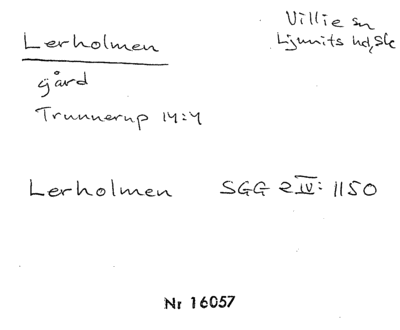 Lerholmen
Villie sn
Ljunits hd, Sk
gård
Trunnerup 14:4
Lerholmen SGG 2 IV: 1150
Nr 16057